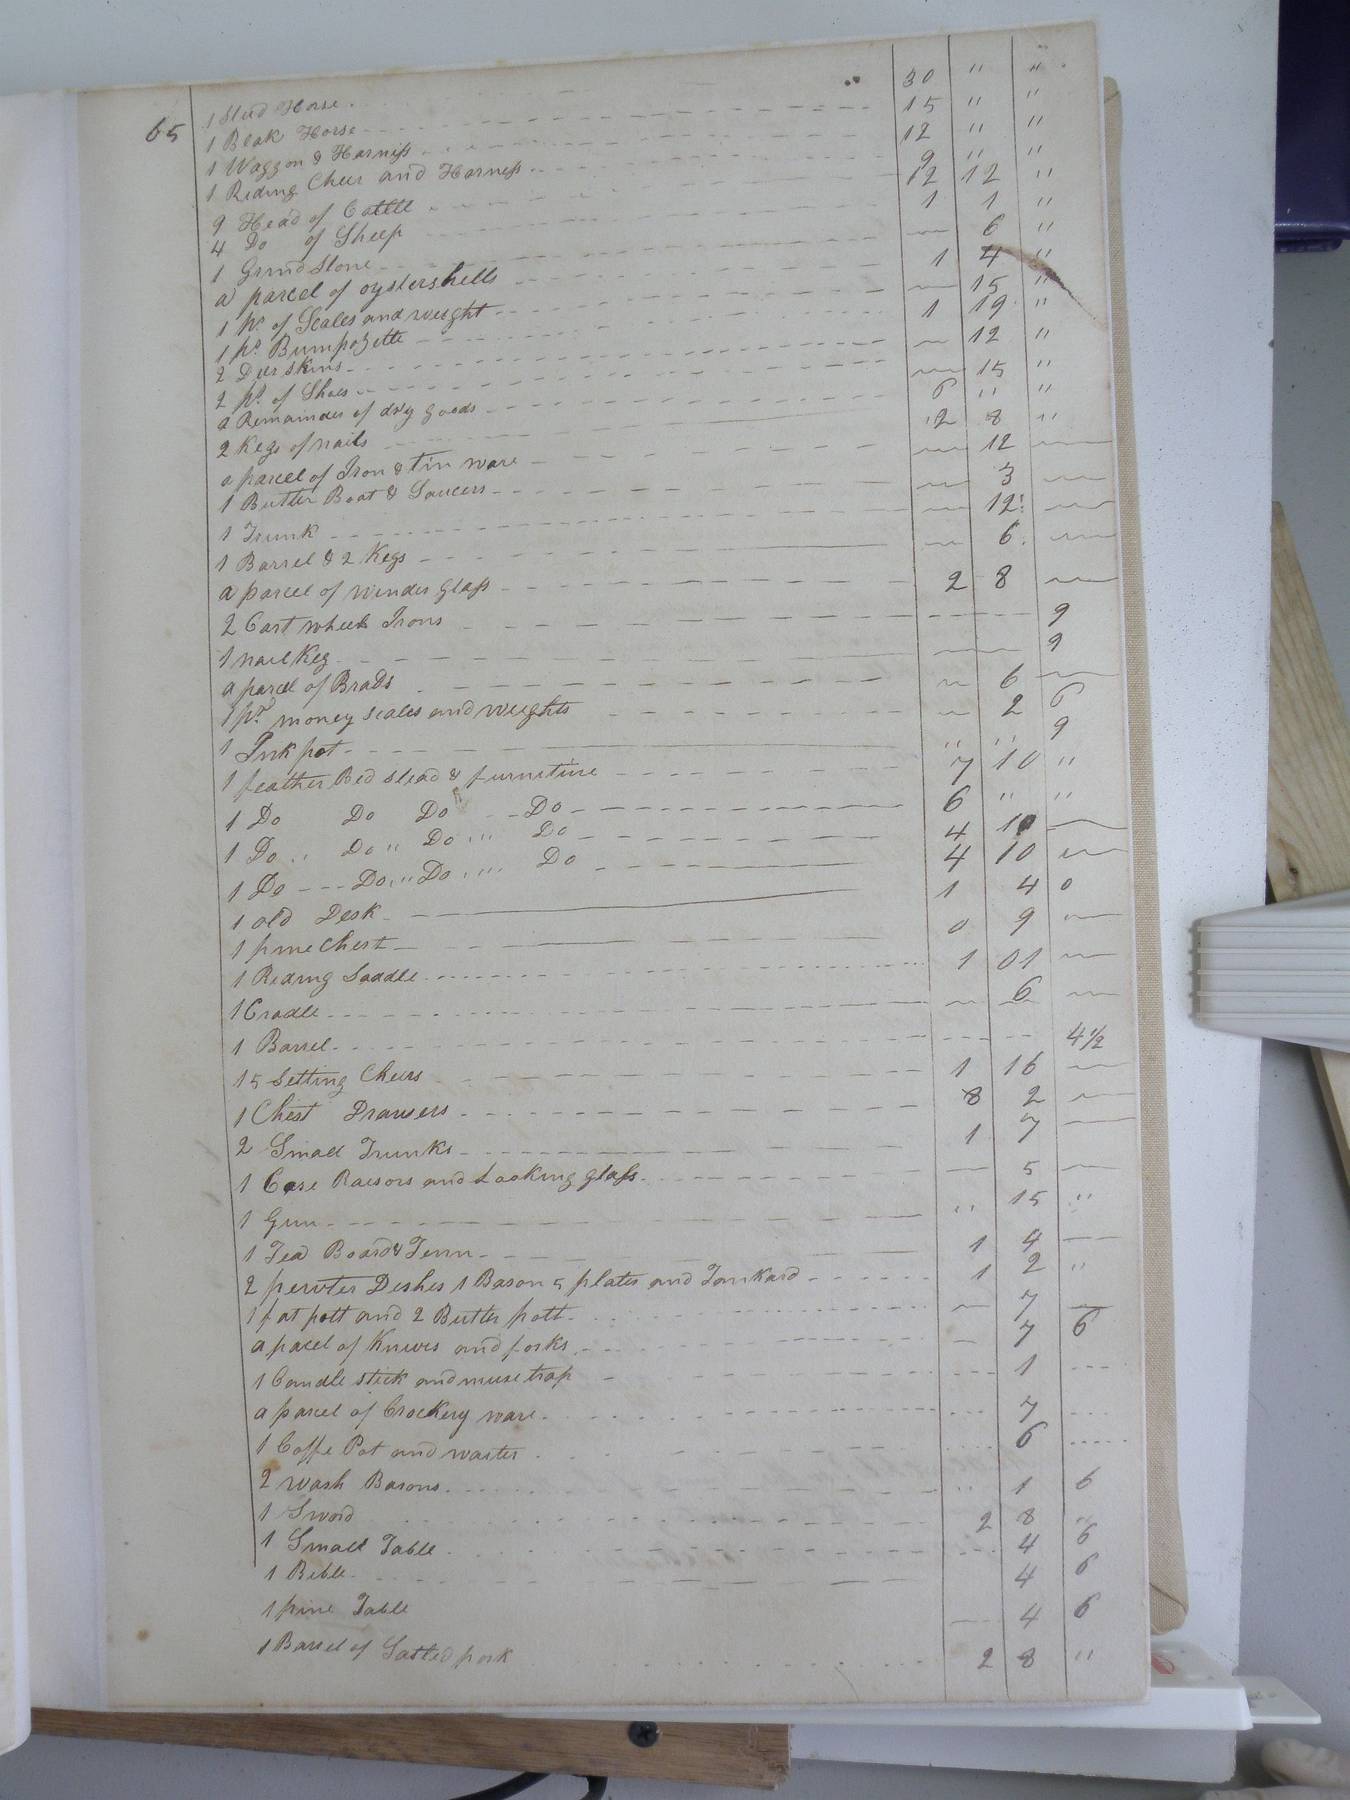 65
1 Stud Horse 30 " "
1 Blak Horse 15 " "
1 Waggon & Harniss 12 " "
1 Riding Cheer and Harness 9 " "
9 Head of Cattle 12 12 "
4 Do of Sheep 1 1 "
1 Grind Stone — 6 "
a parcel of oystershells 1 4 "
1 pr. of Scales and weight — 15 "
1 ps Bumpozette 1 19 "
2 Deer skins — 12 "
2 pr. of Shoes — 15 "
a Remainder of dry goods 6 " "
2 Kegs of nails 2 8 "
a parcel of Iron & tin ware — 12 —
1 Butter Boat & Saucers — 3 —
1 Trunk — 12 —
1 Barrel & 2 Kegs — 6 —
a parcel of winder glass 2 8 —
2 Cart wheel Irons 9
1 nail Keg — — 9
a parcel of Brads — 6 —
1 pr money scales and weights — 2 6
1 Ink pot " " 9
1 feather Bed stead & furnitine 7 10 "
1 Do Do Do Do 6 " "
1 Do " Do " Do " Do 4 10 —
1 Do Do " Do " Do 4 10 —
1 old Desk 1 4 0
1 pine Chest 0 9 —
1 Riding Saddle 1 01 —
1 Cradle — 6 —
1 Barrel 4 1/2
15 Setting Cheers 1 16 —
1 Chest Drawers 8 2 —
2 Small Trunks 1 7 —
1 Case Raesors and Looking glass — 5 —
1 Gun " 15 "
1 Tea Board & Tenn 1 4 —
2 pewter Deshes 1 Bason 5 plates and Tankard 1 2 "
1 fat pott and 2 Butter pott — 7 —
a pacel of Knives and forks — 7 6
1 Candle stick and muse trap 1
a parcel of Crockery ware 7
1 Coffe Pot and waiter 6
2 wash Basons " 1 6
1 Sword 2 8 "
1 Small Table 4 6
1 Bible 4 6
1 pine Table — 4 6
1 Barrel of Satted pork 2 8 "